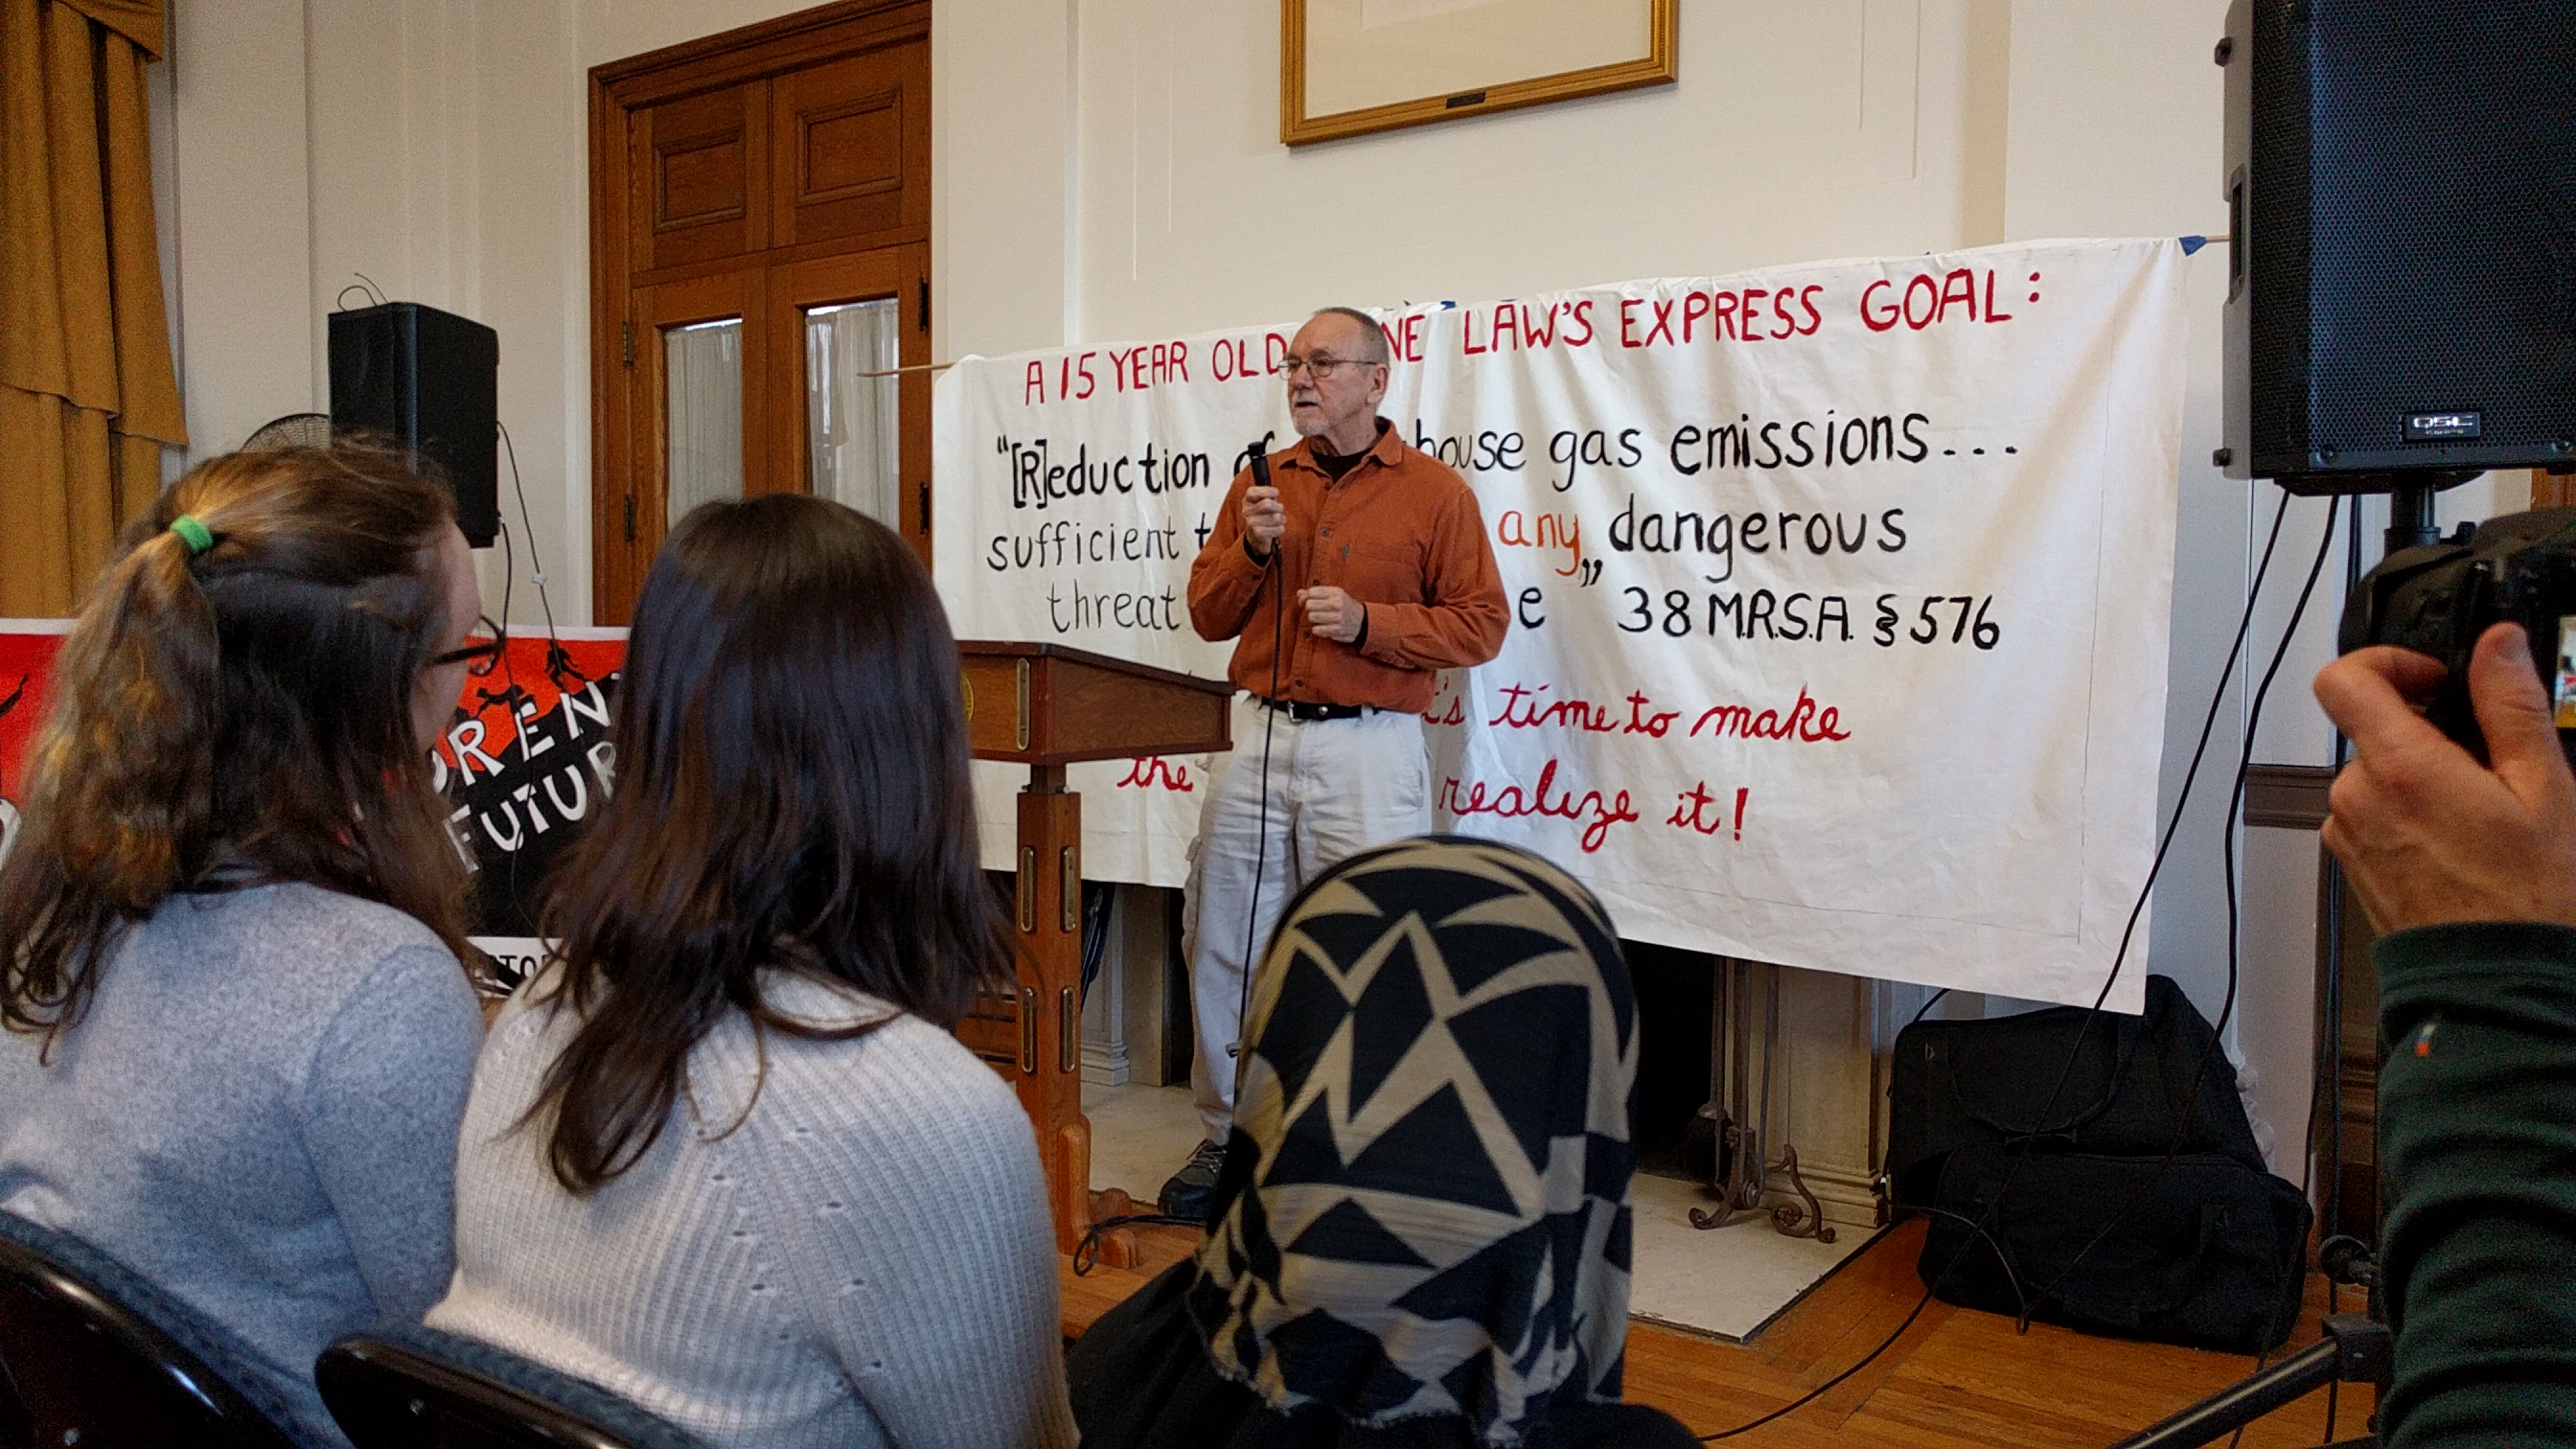 A 15 YEAR OLD NE LAW'S EXPRESS GOAL:
"[R]eduction of house gas emissions...
sufficient t any„ dangerous
threat e " 38 M.R.S.A. § 576
's time to make
the realize it!
DREN'
FUTUR
QSC